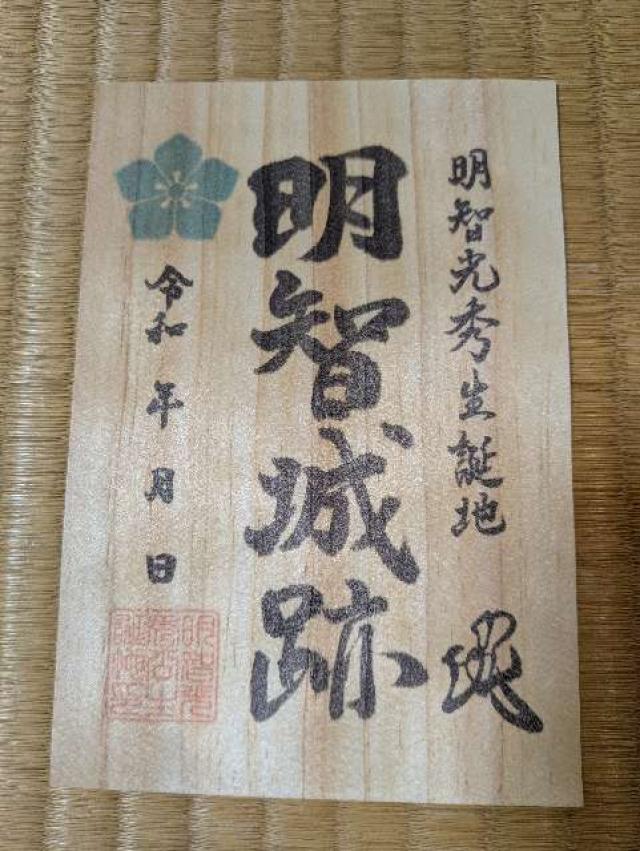 明智光秀生誕地
明智城跡
令和 年 月 日